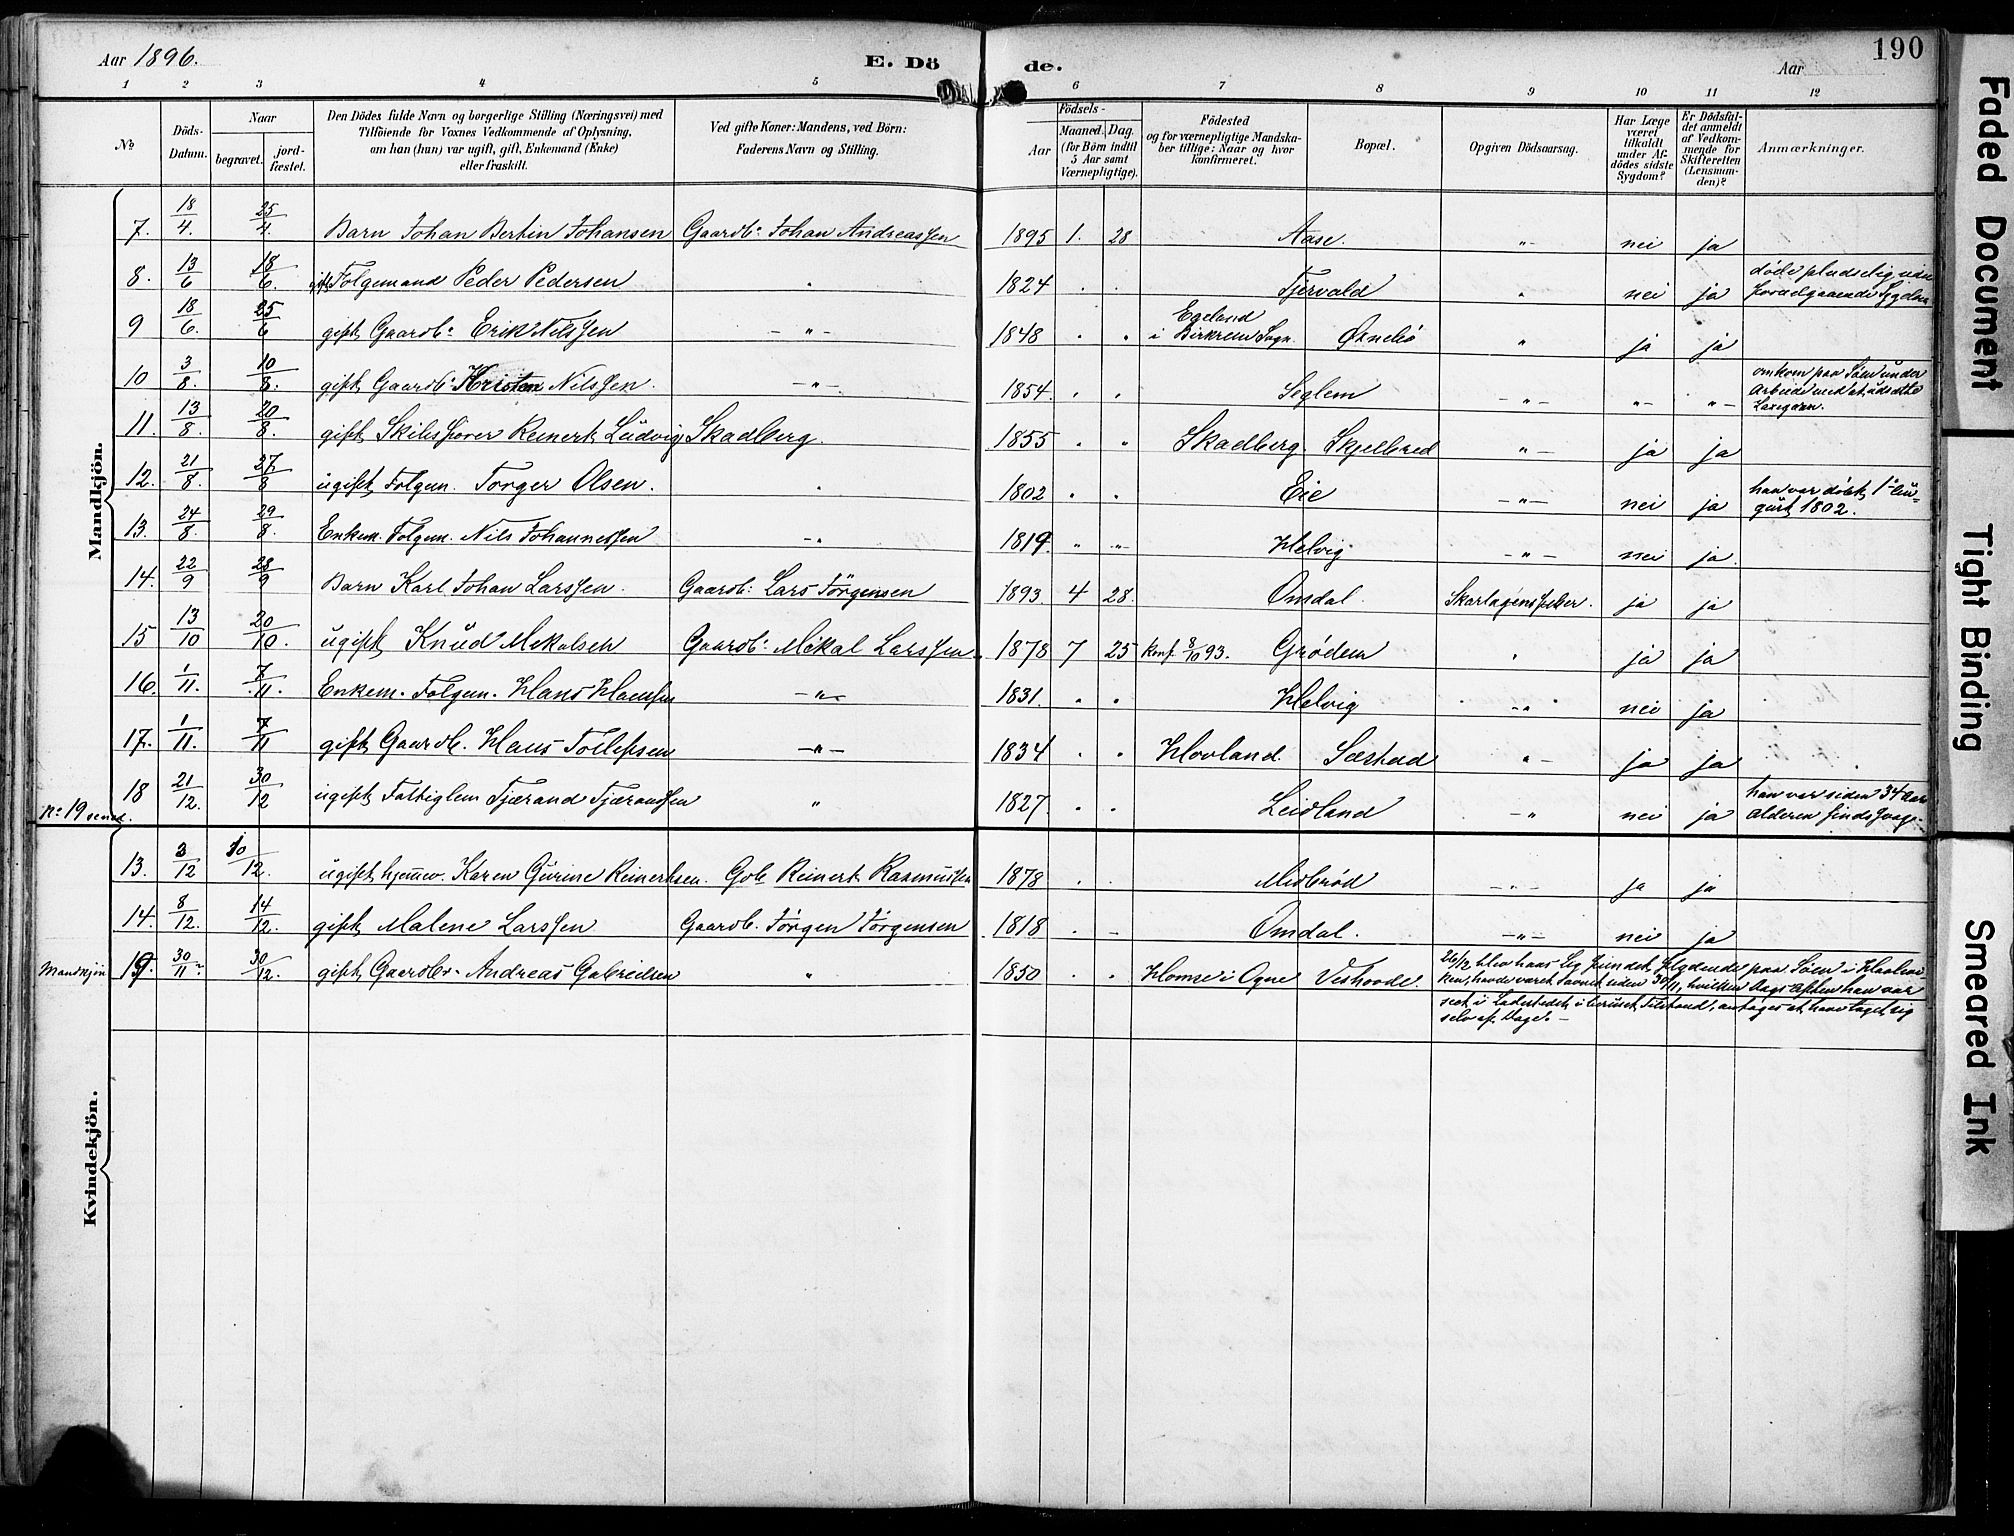 Aar 1896.
E. Dö de.
Aar
190
1 2 3 4 5 6 7 8 9 10 11 12
No.
Döds-Datum.
Naar
begravet.
jord-fæstet.
Den Dödes fulde Navn og borgerlige Stilling (Næringsvei) med
Tilföiende for Voxnes Vedkommende af Oplysning,
om han (hun) var ugift, gift, Enkemand (Enke)
eller fraskilt.
Ved gifte Koner: Mandens, ved Börn:
Faderens Navn og Stilling.
Födsels-
Aar
Maaned. Dag.
(for Börn indtil
5 Aar samt
Værnepligtige).
Födested
og for værnepligtige Mandska-
ber tillige: Naar og hvor
konfirmeret.
Bopæl.
Opgiven Dödsaarsag.
Har Læge
været
tilkaldt
under Af-
dödes sidste
Sygdom?
Er Dödsfal-
det anmeldt
af Vedkom-
mende for
Skifteretten
(Lensman-
den)?
Anmærkninger.
Mandkjön.
7. 18/4. 25/4. Barn Johan Bertin Johansen Gaardb: Johan Andreassen 1895 1. 28 Aase. „ nei ja
8. 13/6 18/6. gift Folgemand Peder Pedersen „ 1824 . . Tjervald „ nei ja døde pludselig uden
forudgaaende Sygdom
9 18/6. 25/6 gift Gaardb: Erik Nilssen – „ – 1848 . . Egeland
i Birkrem Sogn. Ørnebø „ ja ja
10 3/8. 10/8. gift Gaardb: Kristen Nilssen. – „ – 1854. . . Seglem – „ – „ – „ – omkom paa Søen under
Arbeide med at udsætte
Laxegarn.
11. 13/8. 20/8. gift Skibsfører Reinert Ludvig Skadberg. 1855 . „ Skadberg. Skjelbred „ – ja ja
12. 21/8. 27/8 ugift Folgem. Torger Olsen. „ 1802 „ . Eie – „ – nei ja han var døbt 1ste August 1802.
13. 24/8. 29/8. Enkem. Folgem. Nils Johannessen – „ 1819. „ „ – Helvig. – „ – nei ja.
14. 22/9 28/9 Barn Karl Johan Larssen. Gaardb: Lars Jörgensen 1893. 4 28. Omdal. Skarlagensfeber. ja ja
15 13/10 20/10. ugift Knud Mikalsen Gaardb: Mikal Larssen 1878 7 25 Konf. 8/10 93. Grødem „ ja ja
16. 1/11. 7/11. Enkem. Folgem. Hans Hansen – „ – 1831. . . Helvig – „ nei ja
17. 1/11. 7/11 gift Gaardb. Hans Tollefsen – „ – 1834 . . Hovland. Sæstad „ – ja ja
18 21/12. 30/12 ugift Fattiglem Tjærand Tjærandsen „ 1827. . . Leidland – „ nei ja han var siden 34 Aars
Alderen sindssvag.
No 19 se ned.
Kvindekjön.
13. 3/12 10/12. ugift hjemmev. Karen Gurine Reinertsen. Gb. Reinert Rasmussen 1878 . . Midbrød – „ – ja ja
14. 8/12. 14/12. gift Malene Larssen Gaardb. Jörgen Jörgensen 1818 . – Omdal. – „ – nei ja
Mandkjön 19. 30/11? 30/12. gift Gaardbr. Andreas Gabrielsen „ 1850 . . Homse i Ogne Veshovde. 26/12 blev hans Lig fundet flydende paa Søen i
havde været savnet siden 30/11, hvilken Dags Aften han var
seet i Ladestedet i beruset Tilstand, antages at have taget sig
selv af Dage. –
Faded Document
Tight Binding
Smeared Ink